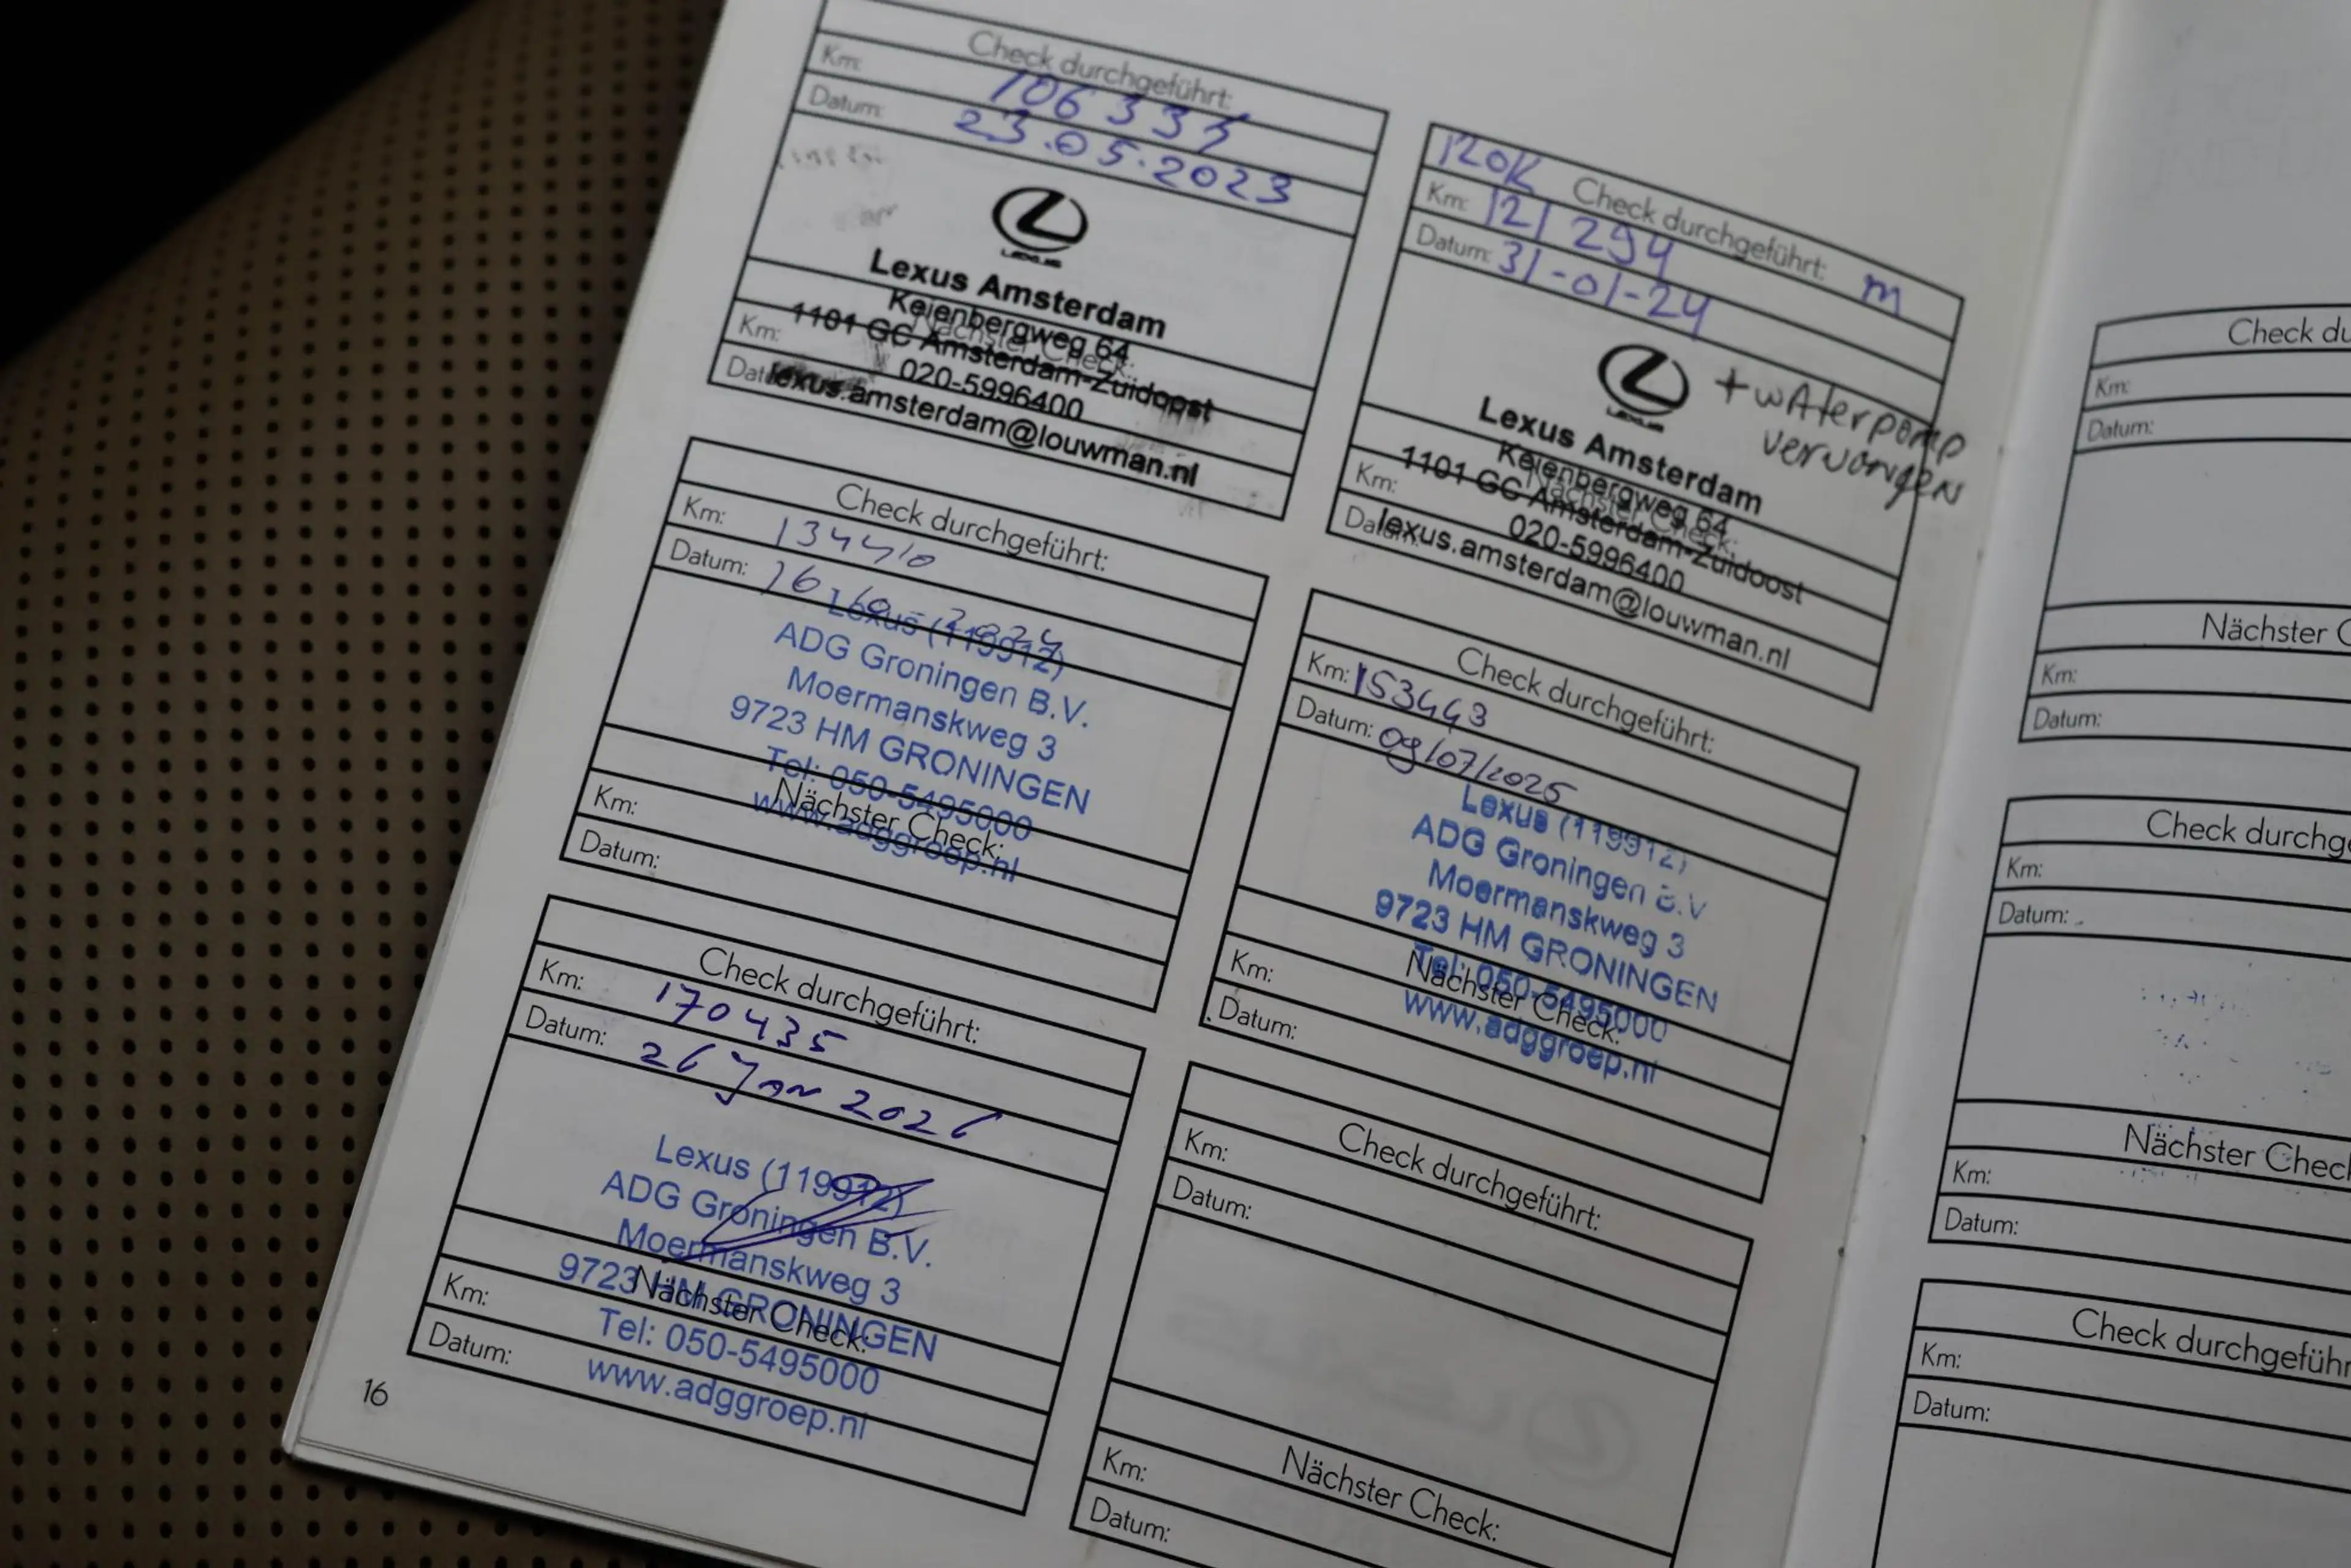 Check durchgeführt:
Km: 106 335
Datum: 23.05.2023
LEXUS
Lexus Amsterdam
Keienbergweg 64
1101 GC Amsterdam-Zuidoost
020-5996400
lexus.amsterdam@louwman.nl
Nächster Check:
Km:
Datum:
120K Check durchgeführt: m
Km: 121 294
Datum: 31-01-24
LEXUS
+ waterpomp
vervangen
Lexus Amsterdam
Keienbergweg 64
1101 GC Amsterdam-Zuidoost
020-5996400
lexus.amsterdam@louwman.nl
Nächster Check:
Km:
Datum:
Check durchgeführt:
Km: 134410
Datum: 16 10 2024
Lexus (119912)
ADG Groningen B.V.
Moermanskweg 3
9723 HM GRONINGEN
Tel: 050-5495000
www.adggroep.nl
Nächster Check:
Km:
Datum:
Check durchgeführt:
Km: 153443
Datum: 09/07/2025
Lexus (119912)
ADG Groningen B.V
Moermanskweg 3
9723 HM GRONINGEN
Tel: 050-5495000
www.adggroep.nl
Nächster Check:
Km:
Datum:
Check durchgeführt:
Km: 170435
Datum: 26 Jan 2026
Lexus (119912)
ADG Groningen B.V.
Moermanskweg 3
9723 HM GRONINGEN
Tel: 050-5495000
www.adggroep.nl
Nächster Check:
Km:
Datum:
Check durchgeführt:
Km:
Datum:
Nächster Check:
Km:
Datum:
16
Check du
Km:
Datum:
Nächster C
Km:
Datum:
Check durchg
Km:
Datum:
Nächster Chec
Km:
Datum:
Check durchgeführ
Km:
Datum: